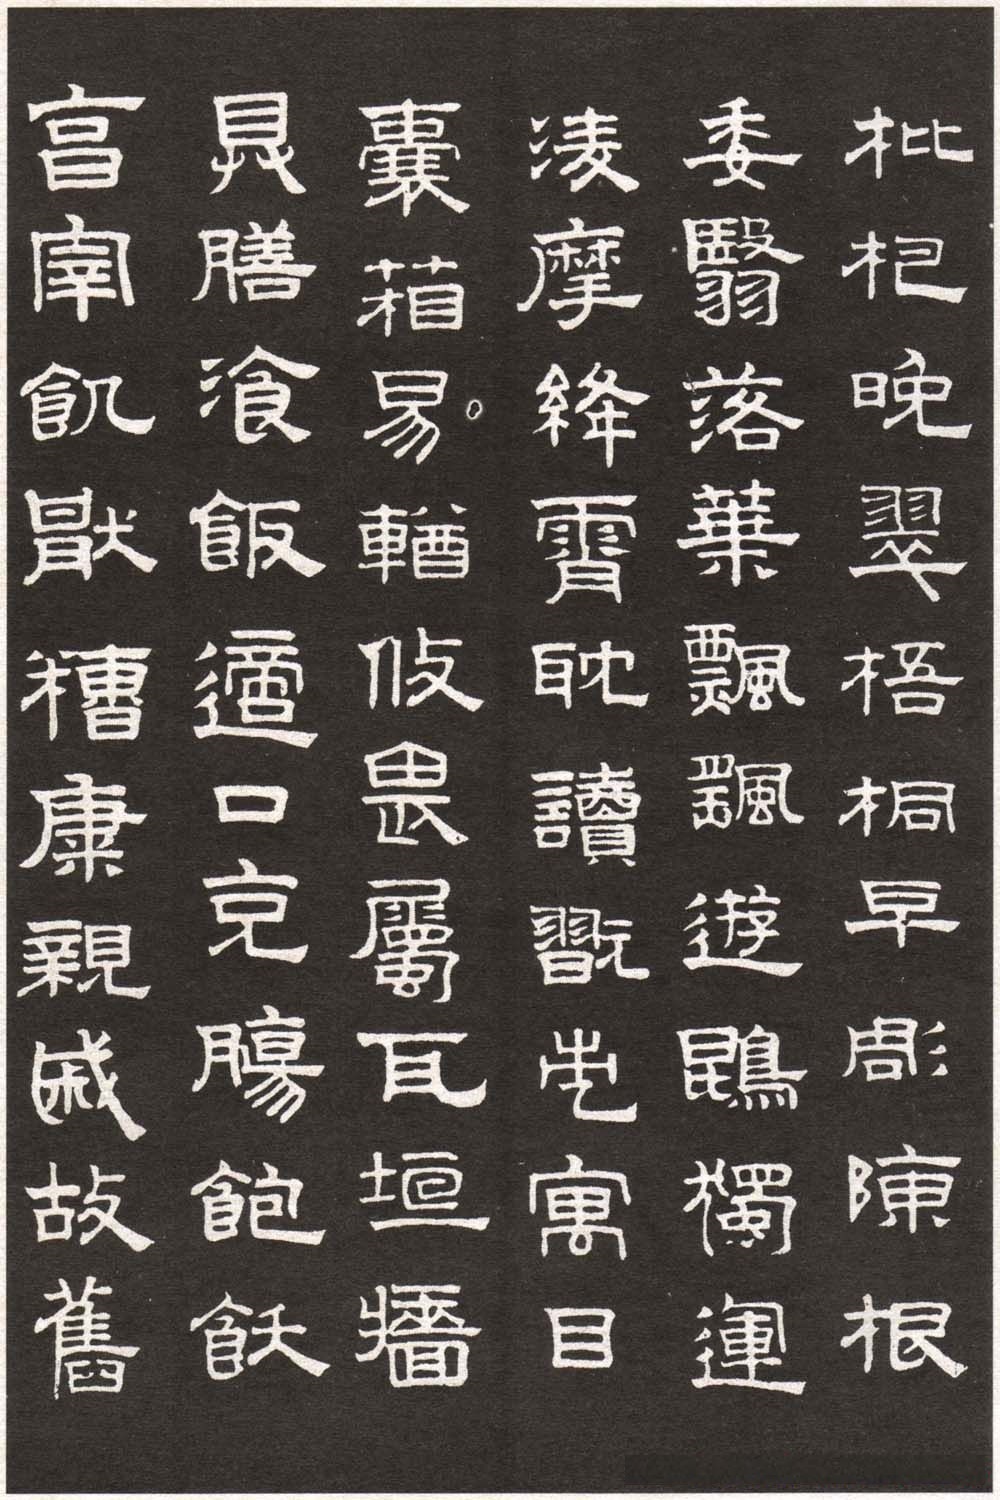 枇杷晚翠梧桐早彫陳根
委翳落葉飄颻遊鵾獨運
淩摩絳霄耽讀翫市寓目
囊箱易輶攸畏屬耳垣牆
具膳飡飯適口充腸飽飫
亯宰飢猒糟糠親戚故舊